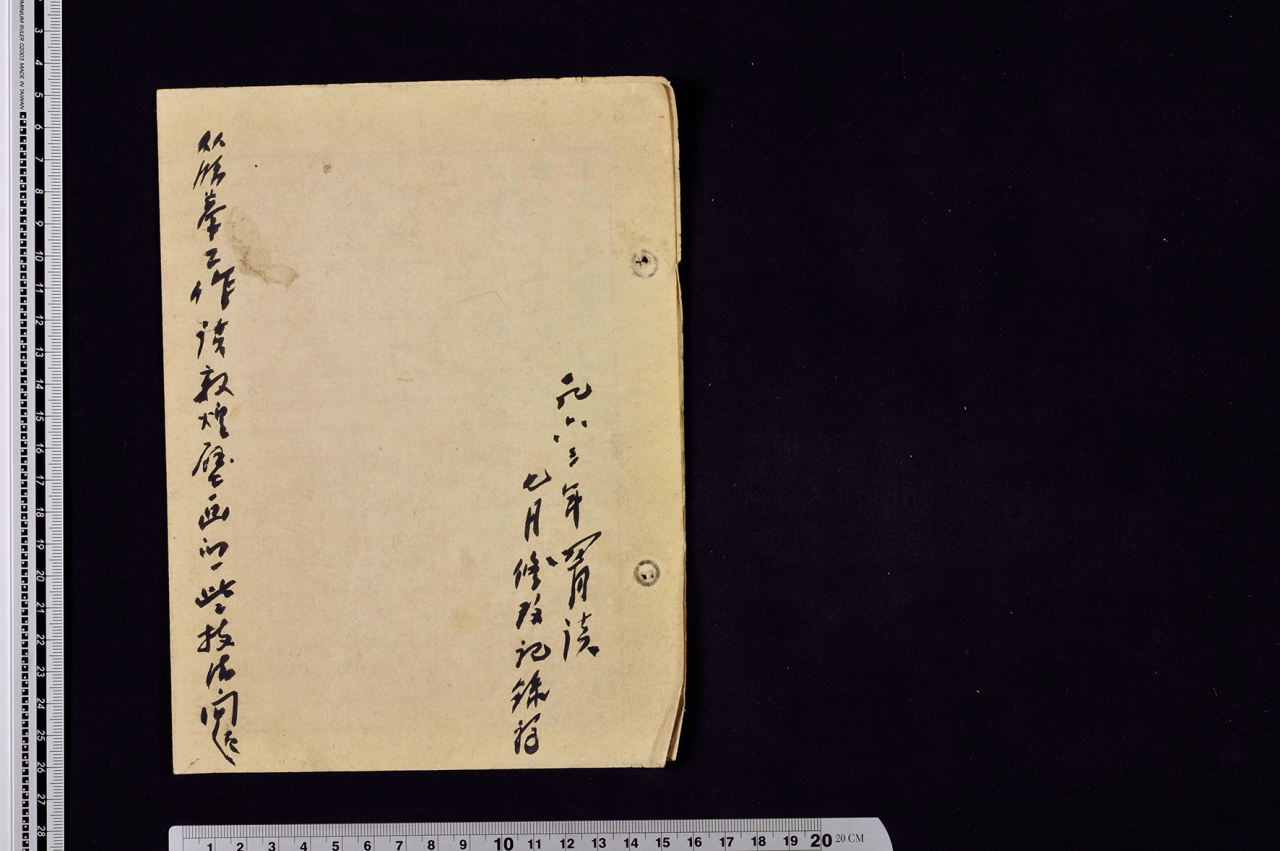 一九六三年四月谈
七月修改记錄稿
从临摹工作谈敦煌壁画的一些技法问题
MINIUM RULER 02003 MADE IN TAIWAN
3 4 5 6 7 8 9 10 11 12 13 14 15 16 17 18 19 20 21 22 23 24 25 26 27 28
1 2 3 4 5 6 7 8 9 10 11 12 13 14 15 16 17 18 19 20 20 CM